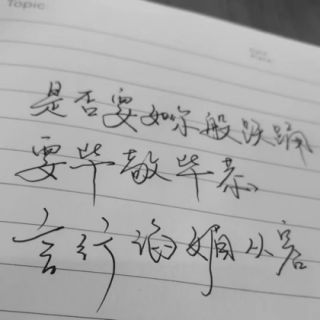 Topic
是否要如你般跃踊
要毕敬毕恭
言行谄媚从容